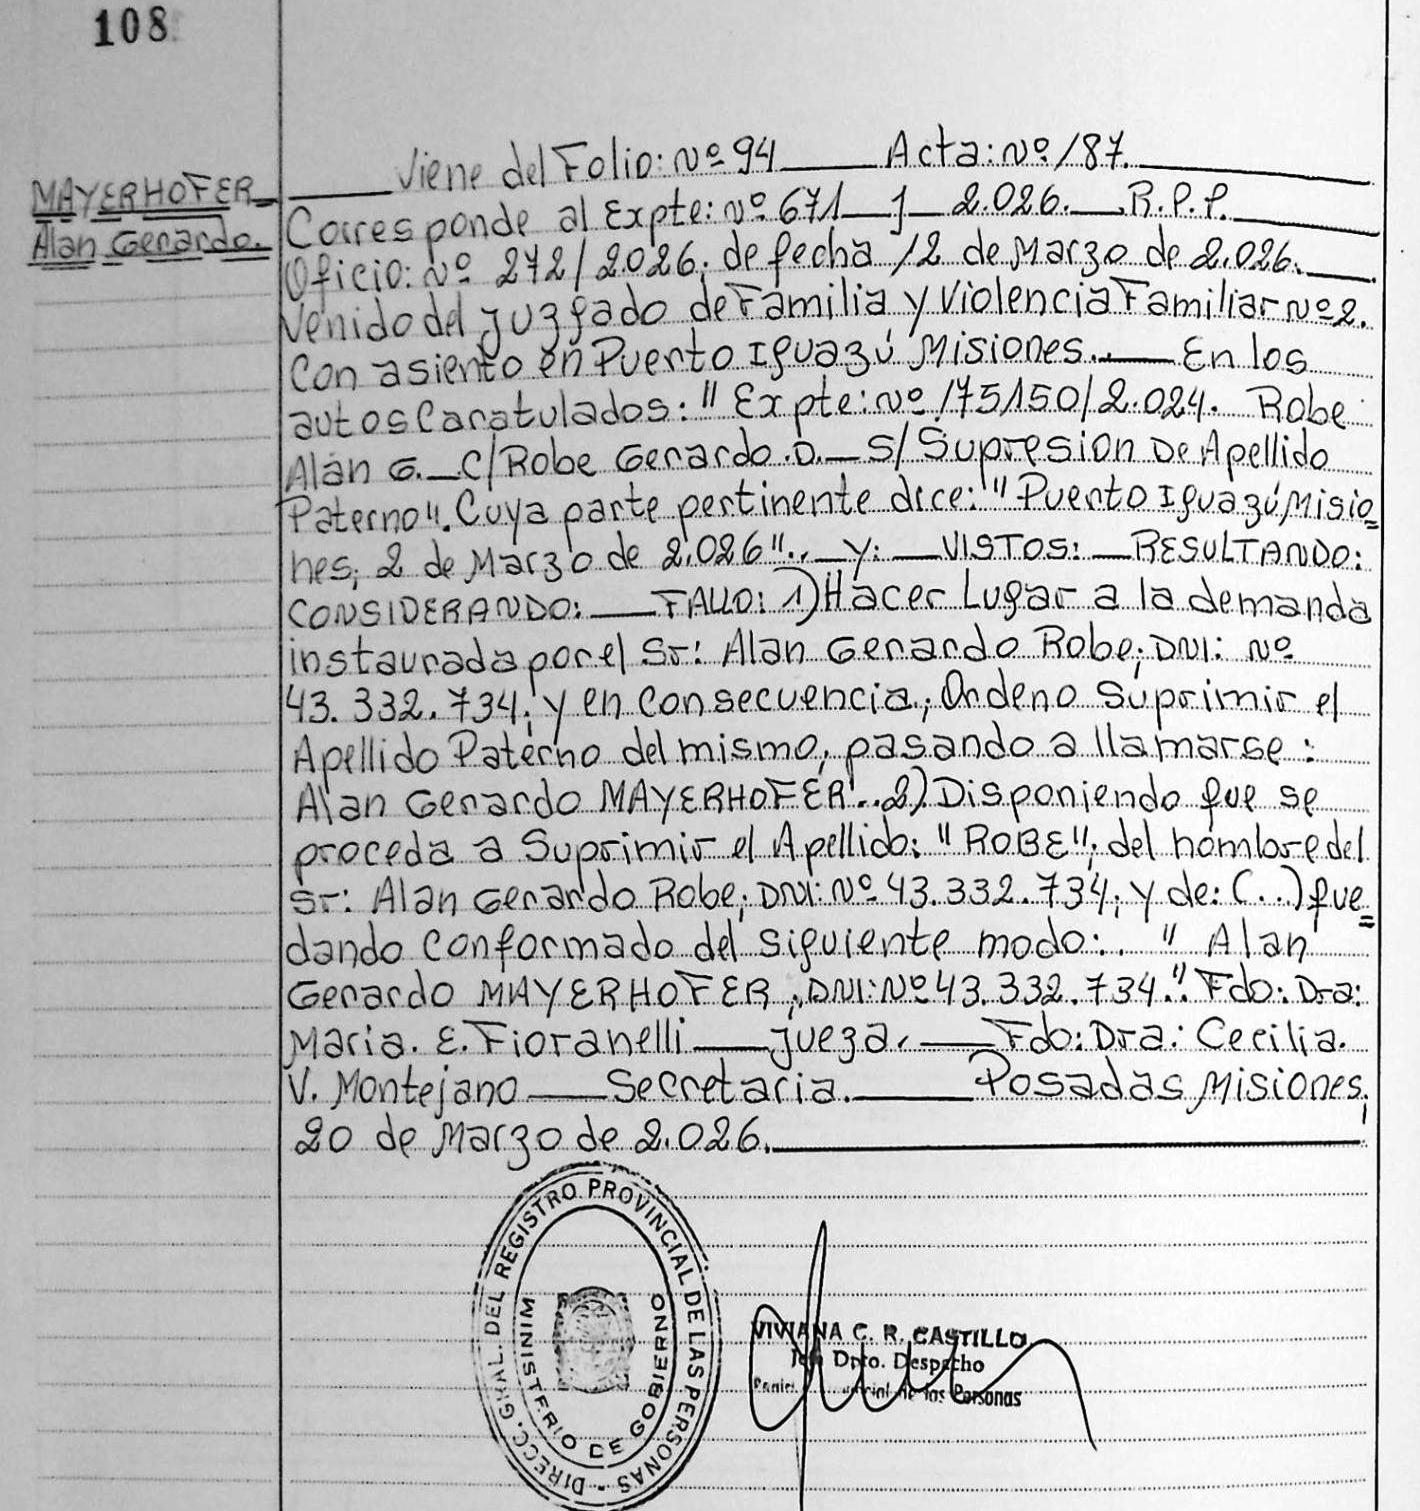 108
MAYERHOFER
Alan Gerardo.
Viene del Folio: Nº 94 Acta: Nº 187.
Corresponde al Expte: Nº 671 J 2.026. R.P.P.
Oficio: Nº 272/2026; de fecha 12 de Marzo de 2.026.
Venido del Juzgado de Familia y Violencia Familiar Nº 2.
Con asiento en Puerto Iguazú Misiones.. En los
autos Caratulados: " Expte: Nº 175150/2.024. Robe
Alan G. C/Robe Gerardo.D. S/Supresion De Apellido
Paterno". Cuya parte pertinente dice: "Puerto Iguazú Misio=
nes; 2 de Marzo de 2.026".. Y: VISTOS: RESULTANDO:
CONSIDERANDO: FALLO: 1) Hacer Lugar a la demanda
instaurada por el Sr: Alan Gerardo Robe; DNI: Nº
43.332.734; y en Consecuencia; Ordeno Suprimir el
Apellido Paterno del mismo; pasando a llamarse:
Alan Gerardo MAYERHOFER.. 2) Disponiendo que se
proceda a Suprimir el Apellido: "ROBE"; del nombre del
Sr: Alan Gerardo Robe; DNI: Nº 43.332.734; y de: (...) que=
dando Conformado del siguiente modo:. " Alan
Gerardo MAYERHOFER; DNI: Nº 43.332.734.". Fdo: Dra:
Maria. E. Fioranelli Jueza. Fdo: Dra: Cecilia.
V. Montejano Secretaria. Posadas Misiones;
20 de Marzo de 2.026.
DIRECC. GRAL. DEL REGISTRO PROVINCIAL DE LAS PERSONAS -
MINISTERIO DE GOBIERNO
VIVIANA C. R. CASTILLO
Dpto. Despacho
de las Personas